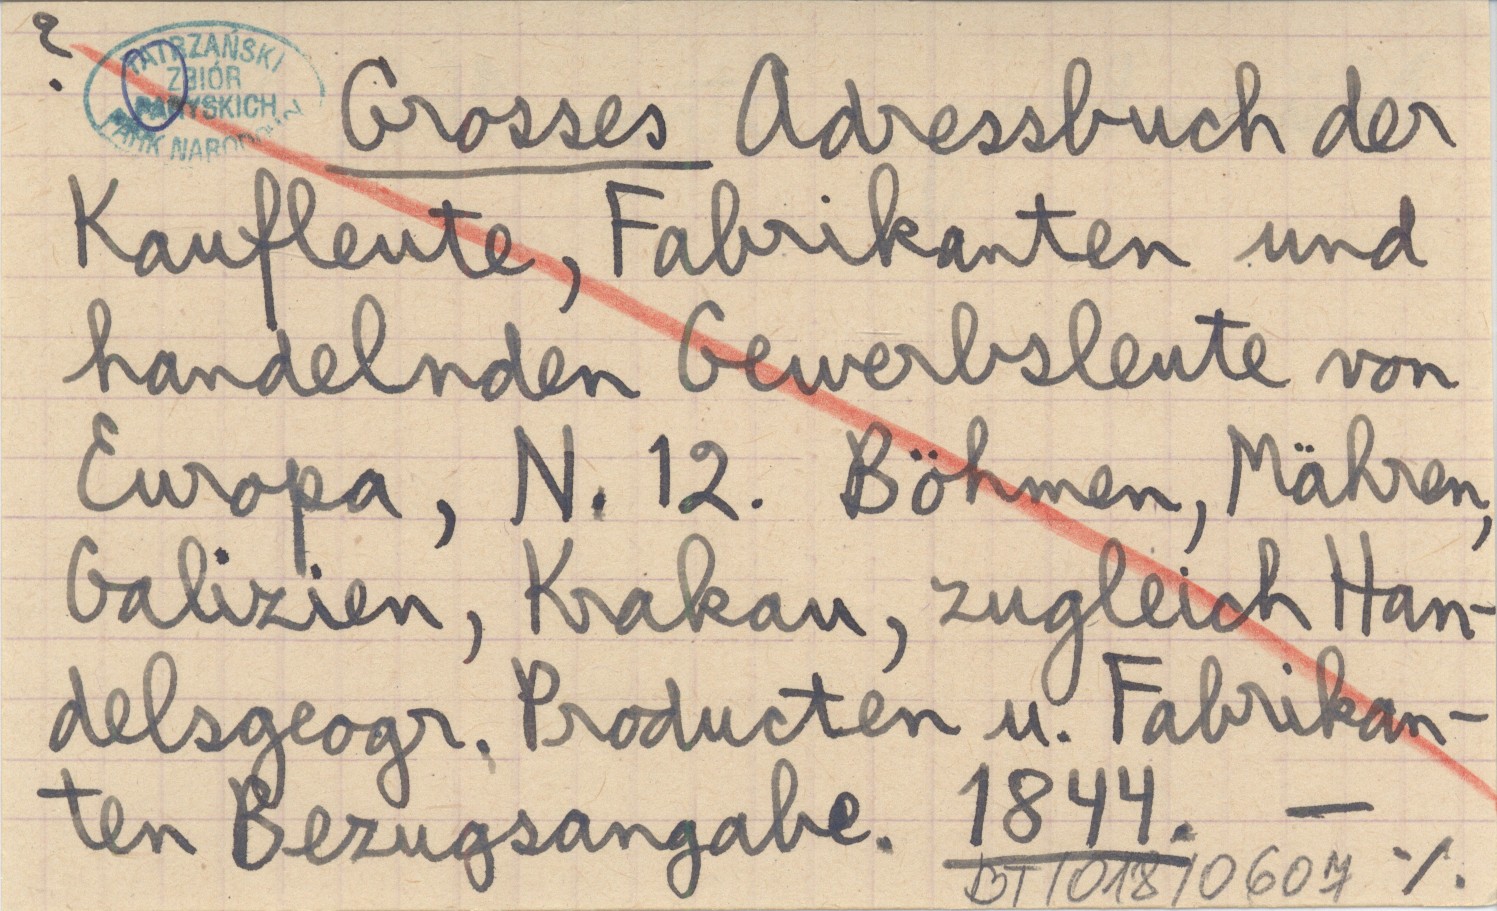 ?
TATRZAŃSKI
ZBIÓR
PARYSKICH
PARK NARODOWY
Grosses Adressbuch der
Kaufleute, Fabrikanten und
handelnden Gewerbsleute von
Europa, N. 12. Böhmen, Mähren,
Galizien, Krakau, zugleich Han-
delsgeogr. Producten u. Fabrikan-
ten Bezugsangabe. 1844. —
BT/018/0607 ·/.